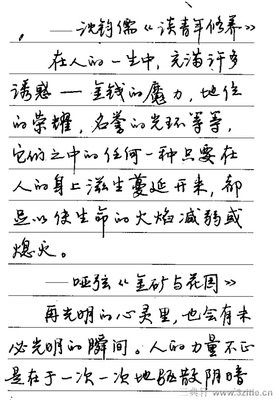 ——沈钧儒《谈青年修养》
在人的一生中，充满许多
诱惑——金钱的魔力，地位
的荣耀，名誉的光环等等，
它们之中的任何一种只要在
人的身上滋生蔓延开来，都
足以使生命的火焰减弱或
熄灭。
——哑弦《金矿与花园》
再光明的心灵里，也会有未
必光明的瞬间。人的力量不正
是在于一次一次地驱散阴暗
www.3zitie.cn